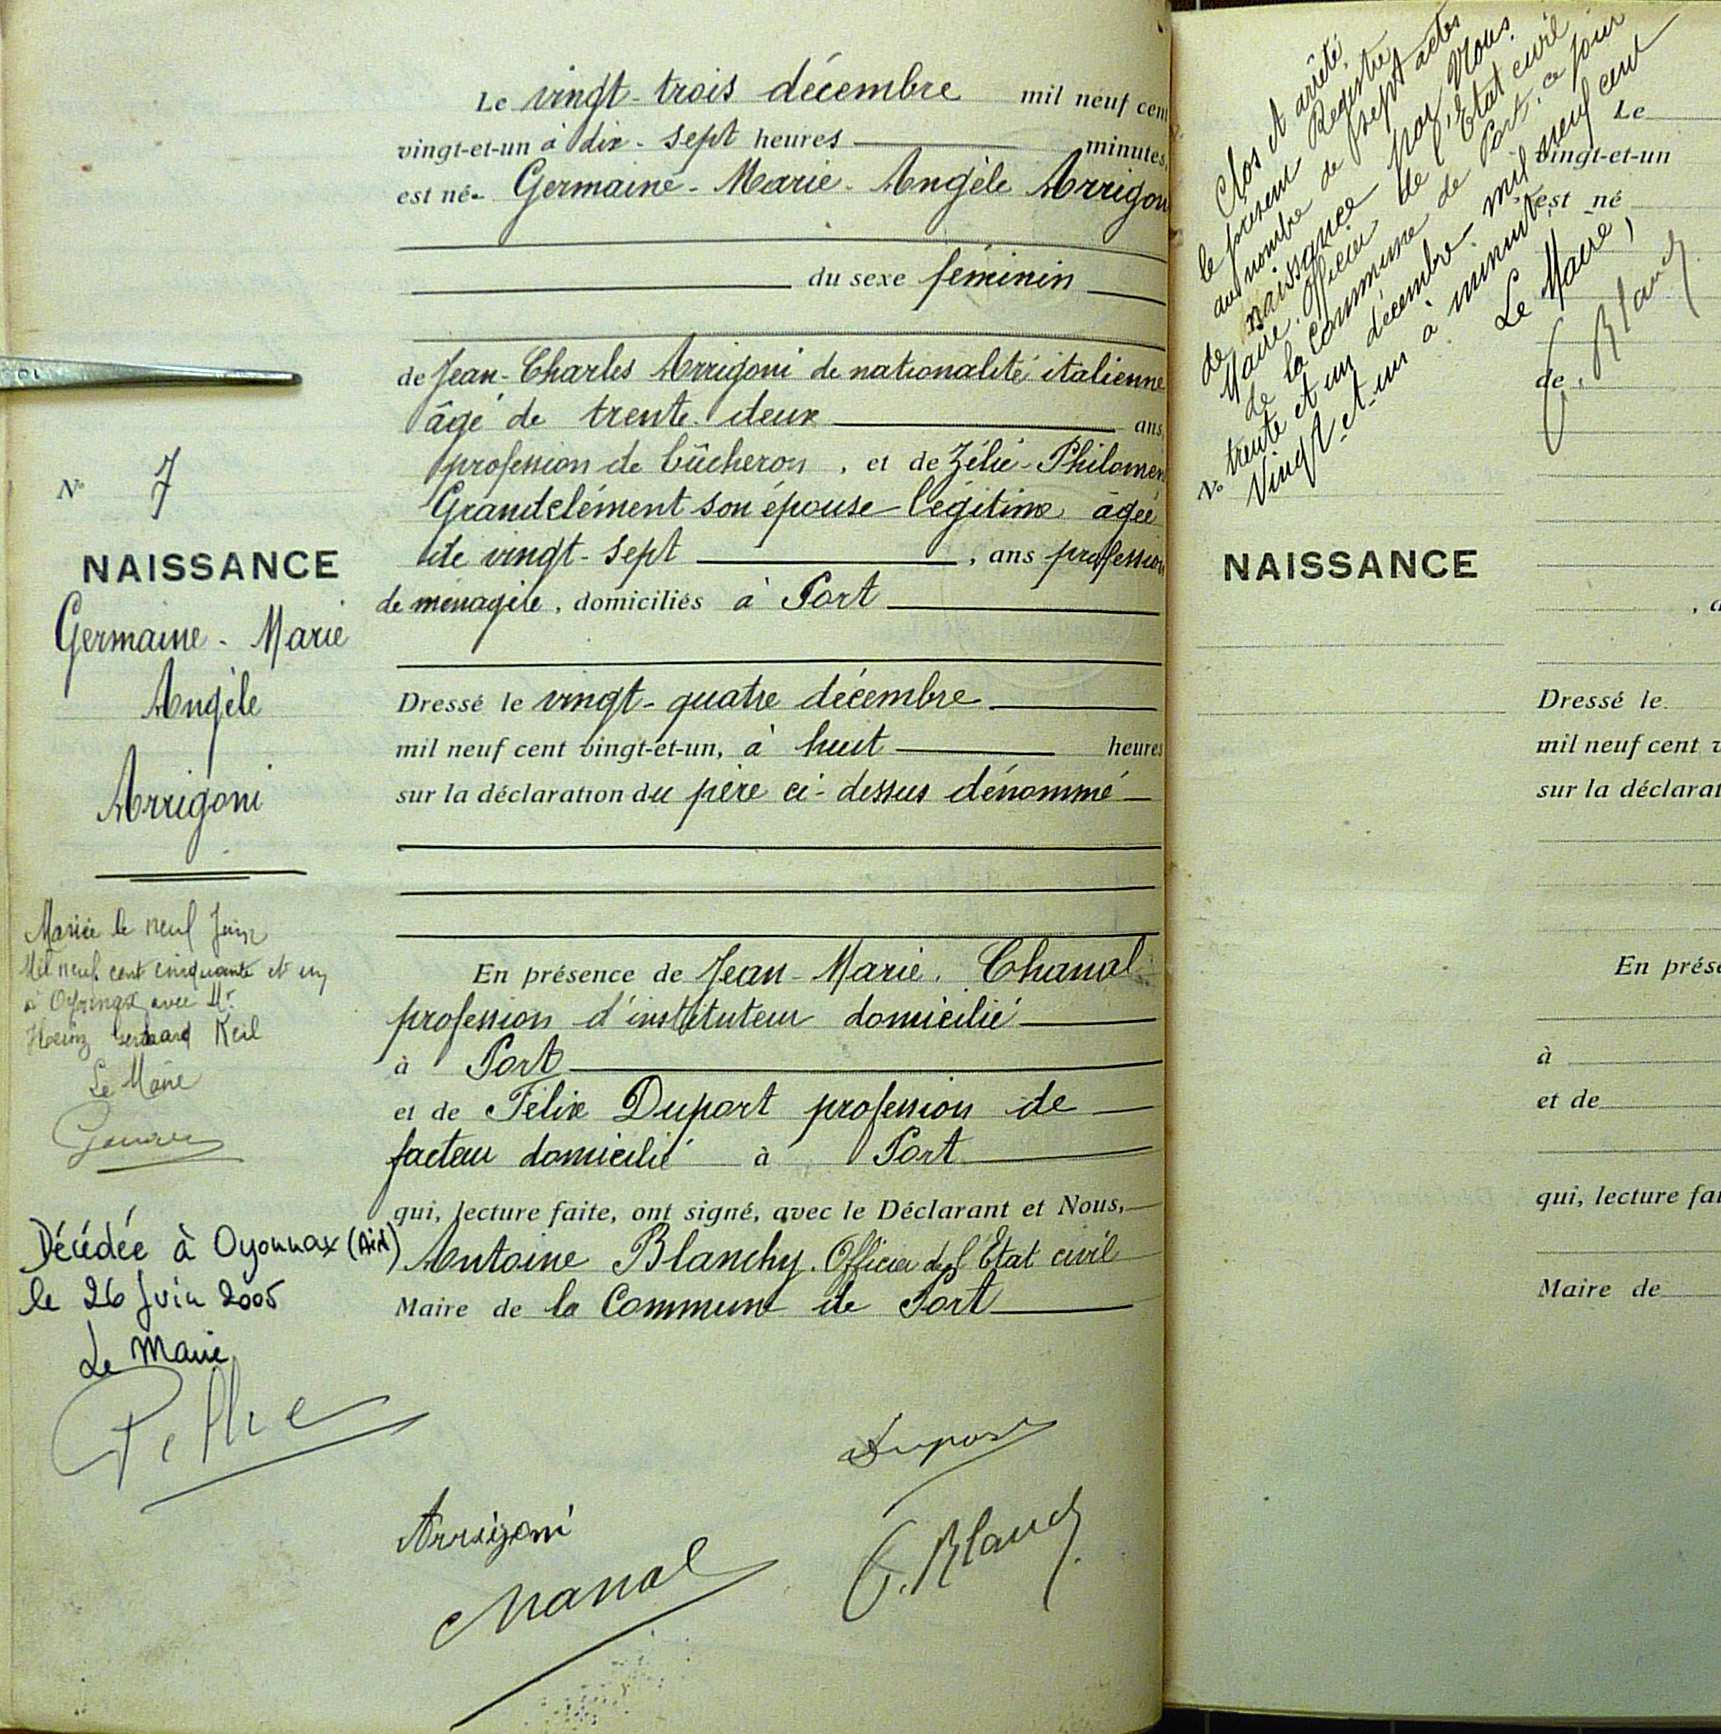 Le vingt-trois décembre mil neuf cent
vingt-et-un à dix-sept heures minutes,
est née Germaine-Marie-Angèle Arrigoni
du sexe féminin
de Jean-Charles Arrigoni de nationalité italienne
âgé de trente-deux ans,
profession de bûcheron, et de Zélie-Philomen
Grandclément son épouse légitime âgée
de vingt-sept, ans profession
de ménagère, domiciliés à Port
Dressé le vingt-quatre décembre
mil neuf cent vingt-et-un, à huit heures
sur la déclaration du père ci-dessus dénommé
En présence de Jean-Marie Chanal
profession d'instituteur domicilié
à Port
et de Félix Duport profession de
facteur domicilié à Port
qui, lecture faite, ont signé, avec le Déclarant et Nous,
Antoine Blanchy. Officier de l'Etat civil
Maire de la Commune de Port
Duport
Arrigoni
Chanal
Blanch
No 7
NAISSANCE
Germaine-Marie
Angèle
Arrigoni
Mariée le neuf Juin
Mil neuf cent cinquante et un
à Oyonnax avec Mr
Heinz Gerhard Keil
Le Maire
Décédée à Oyonnax (Ain)
le 26 Juin 2005
Le Maire
Clos et arrêté
le présent Registre
au nombre de sept actes
de naissance par Nous
Maire Officier de l'Etat civil
de la commune de Port, ce jour
trente et un décembre mil neuf cent
Vingt-et-un à minuit.
Le Maire,
Blanch
Le
vingt-et-un
est né
de
No
NAISSANCE
Dressé le
mil neuf cent v
sur la déclarat
En prése
à
et de
qui, lecture fai
Maire de